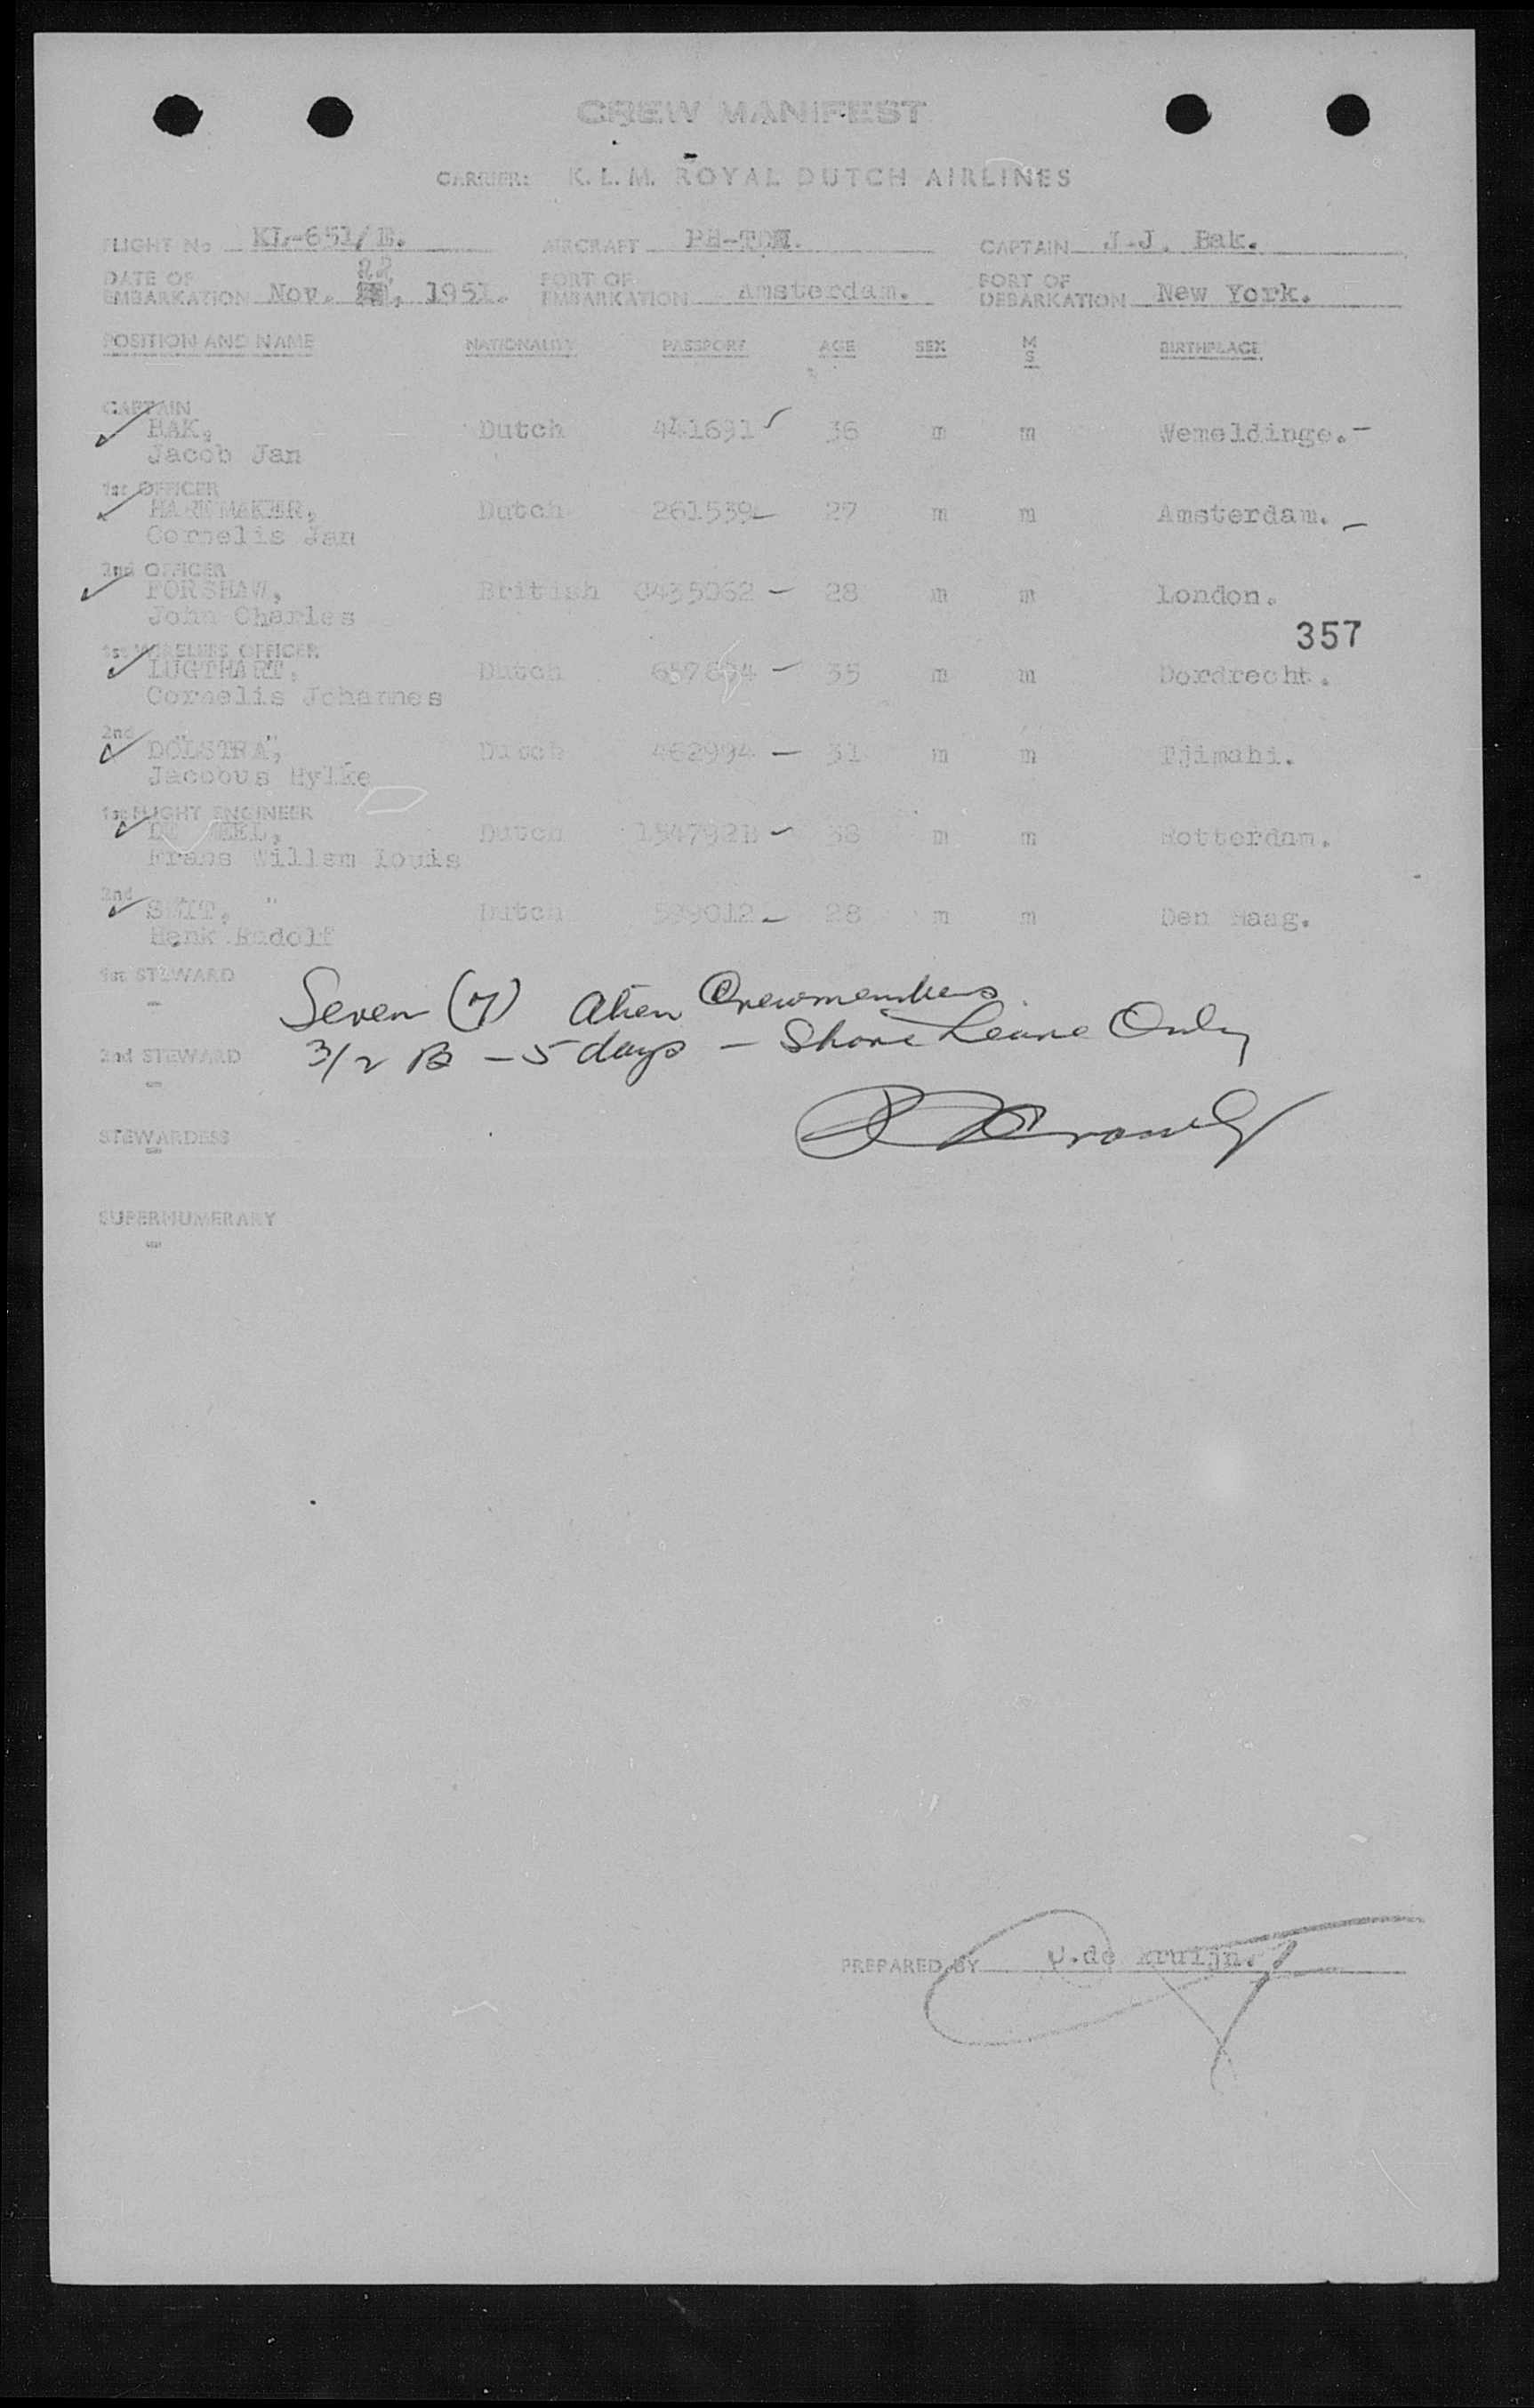 CREW MANIFEST
CARRIER: K. L. M. ROYAL DUTCH AIRLINES
FLIGHT No KL-651/E. AIRCRAFT CAPTAIN J.J. Bak.
22
DATE OF EMBARKATION Nov. , 1951. PORT OF EMBARKATION Amsterdam. PORT OF DEBARKATION New York.
POSITION AND NAME NATIONALITY PASSPORT AGE SEX M S BIRTHPLACE
CAPTAIN
BAK, Dutch 441691 36 m m Wemeldinge.
Jacob Jan
1st OFFICER
Dutch 261539 27 m m Amsterdam.
Cornelis Jan
2nd OFFICER
FORSHAW, British 28 m m London.
John Charles
357
1st WIRELESS OFFICER
LUGTHART, Dutch 35 m m Dordrecht.
Cornelis Johannes
2nd "  "
DOLSTRA, Dutch 462994 31 m m Tjimahi.
Jacobus Hylke
1st FLIGHT ENGINEER
Dutch 38 m m Rotterdam.
Frans Willem Louis
2nd "
SMIT, Dutch 599012 28 m m Den Haag.
Henk Rudolf
1st STEWARD
-
Seven (7) Alien Crewmembers
2nd STEWARD
-
3/2 B - 5 days - Shore Leave Only
STEWARDESS
-
SUPERNUMERARY
-
PREPARED BY de Kruijn.